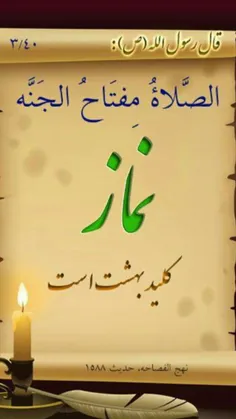 قال رسول الله (ص):
۳/۴۰
الصَّلاهُ مِفتَاحُ الجَنَّه
نماز
کلید بهشت است
نهج الفصاحه، حدیث ۱۵۸۸